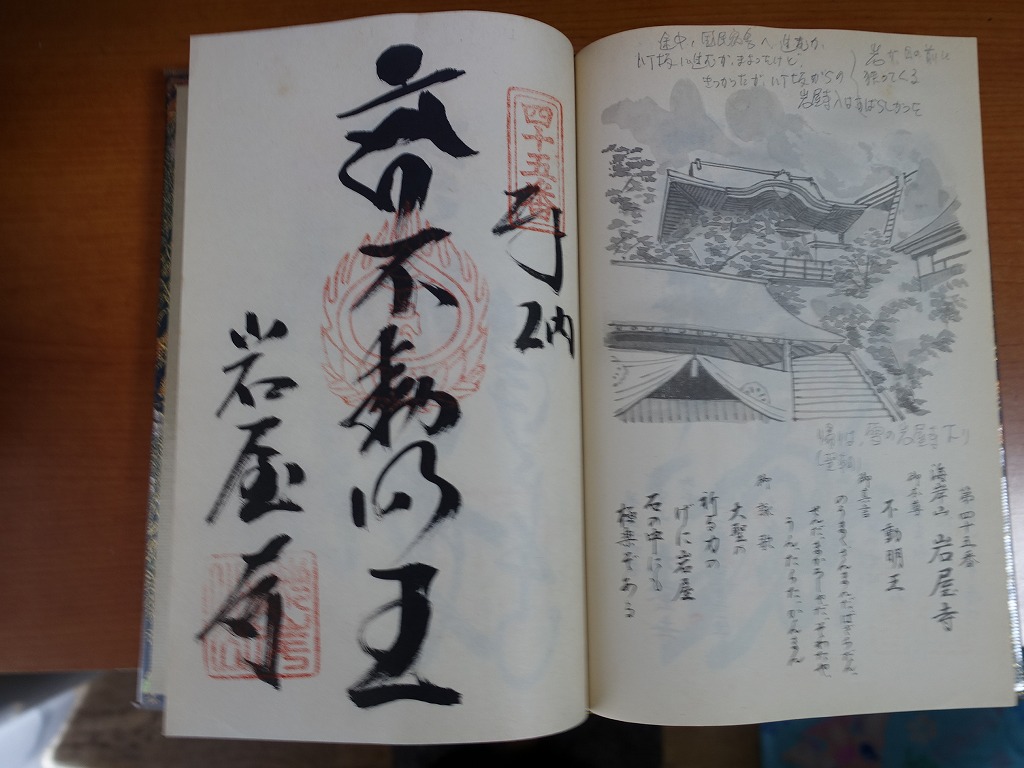 途中、国民宿舎へ進むか
八丁坂に進むかまよったけど、
きつかったが 八丁坂からの
岩屋寺入はすばらしかった
岩が目の前に
迫ってくる
雪の岩屋寺下り
第四十五番
海岸山 岩屋寺
御本尊
不動明王
御真言
のうまく、さんまんだ、ばざらだん、
せんだ、まかろしゃだ、そわたや、
うんたらた、かんまん
御詠歌
大聖の
祈る力の
げに岩屋
石の中にも
極楽ぞある
四十五番
奉納
不動明王
岩屋寺